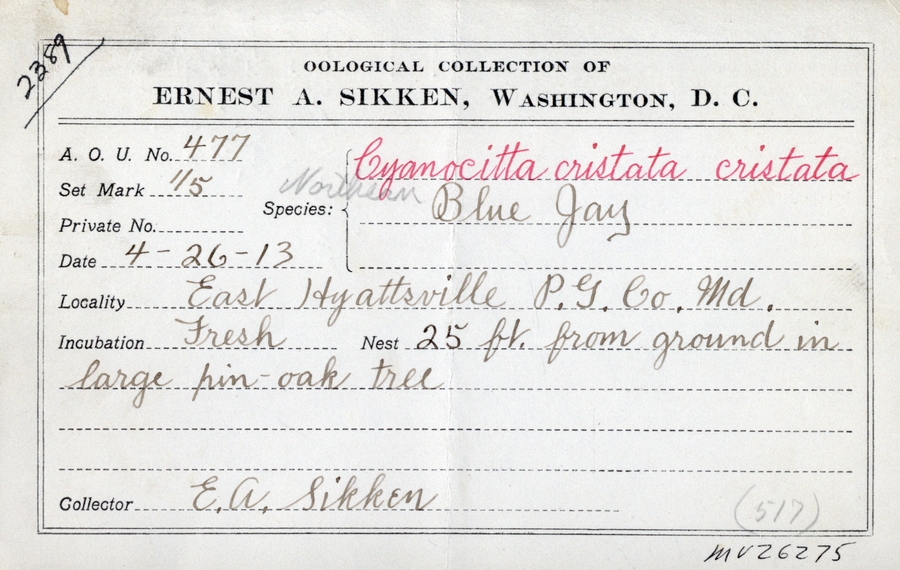 2389
OOLOGICAL COLLECTION OF
ERNEST A. SIKKEN, WASHINGTON, D. C.
A. O. U. No. 477
Cyanocitta cristata cristata
Set Mark 1/5
Northern
Species: Blue Jay
Private No.
Date 4-26-13
Locality East Hyattsville P.G. Co. Md.
Incubation Fresh Nest 25 ft. from ground in
large pin-oak tree
Collector E.A. Sikken
(517)
MV26275